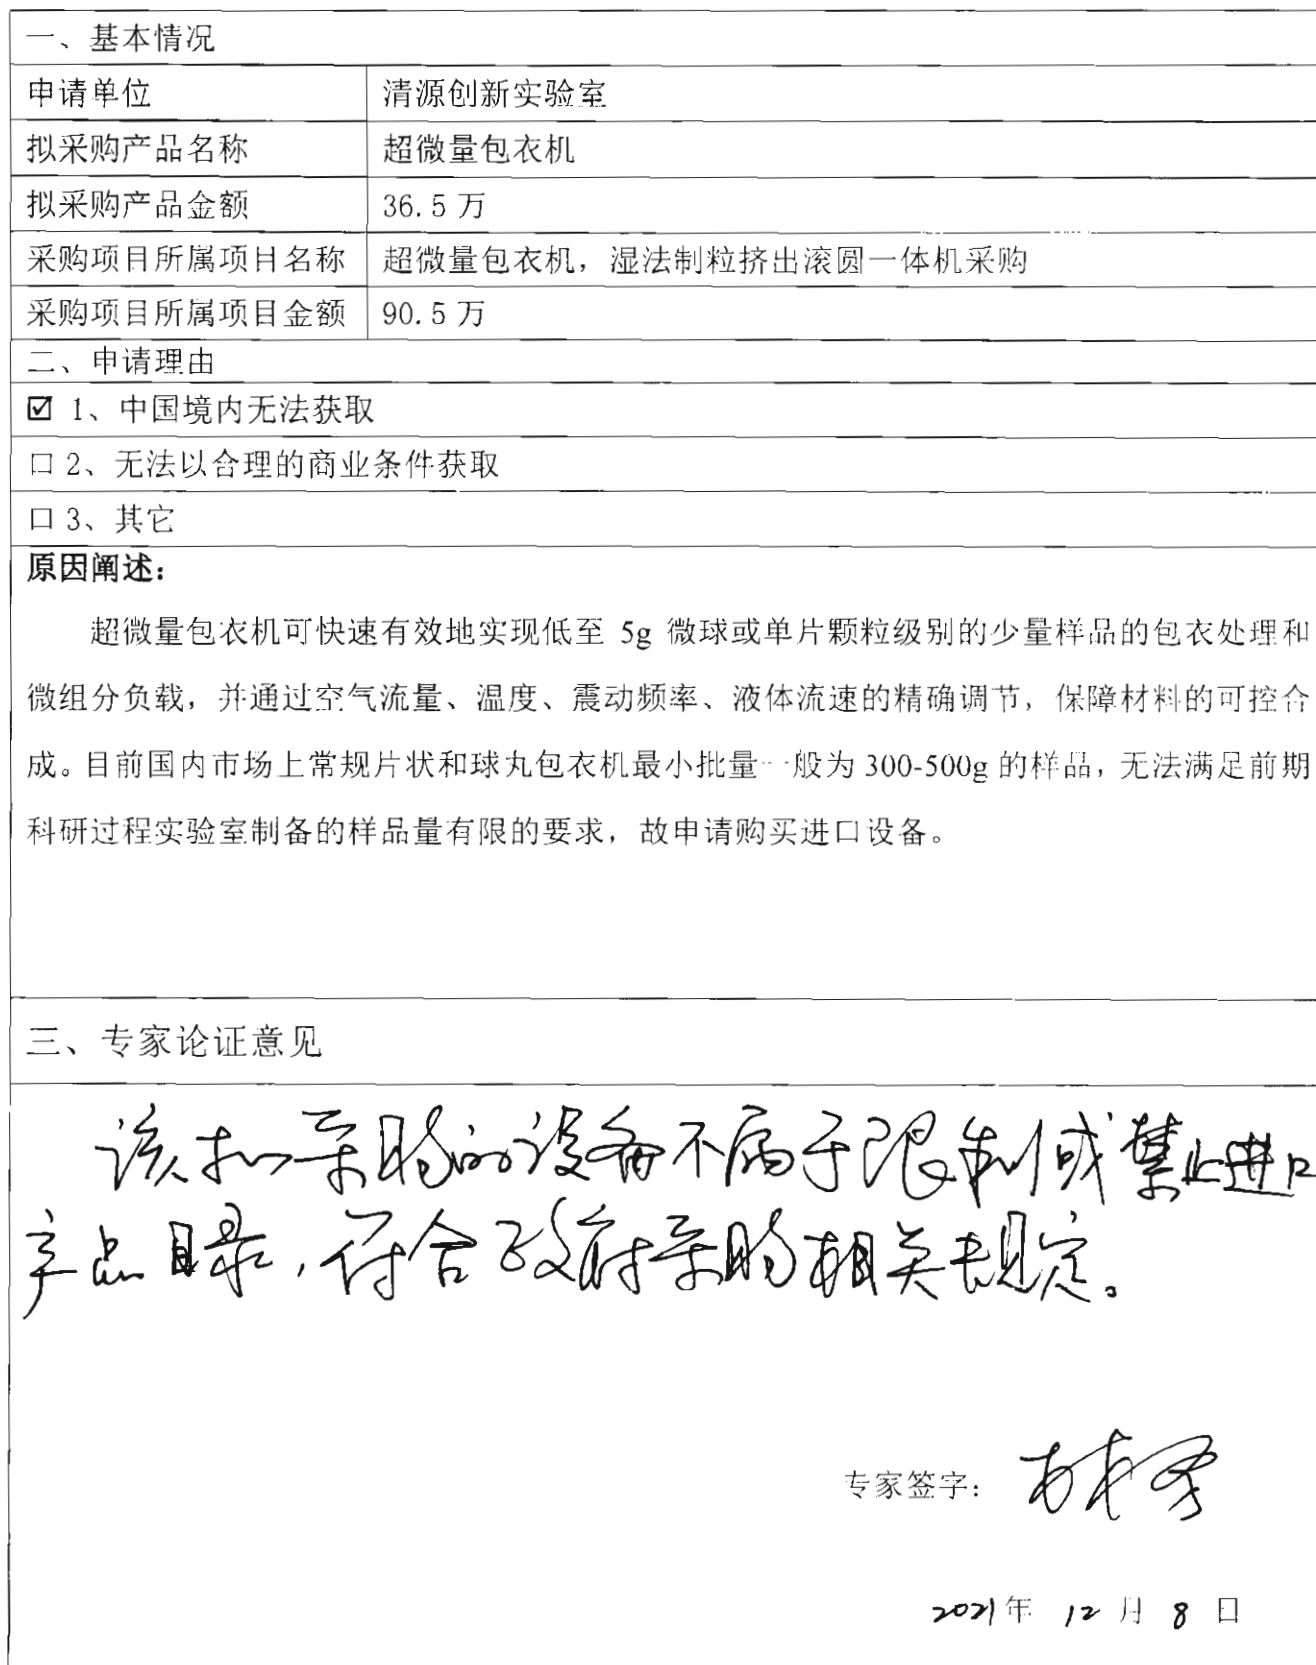 一、基本情况
申请单位 清源创新实验室
拟采购产品名称 超微量包衣机
拟采购产品金额 36.5 万
采购项目所属项目名称 超微量包衣机，湿法制粒挤出滚圆一体机采购
采购项目所属项目金额 90.5 万
二、申请理由
☑ 1、中国境内无法获取
口 2、无法以合理的商业条件获取
口 3、其它
原因阐述：
超微量包衣机可快速有效地实现低至 5g 微球或单片颗粒级别的少量样品的包衣处理和
微组分负载，并通过空气流量、温度、震动频率、液体流速的精确调节，保障材料的可控合
成。目前国内市场上常规片状和球丸包衣机最小批量一般为 300-500g 的样品，无法满足前期
科研过程实验室制备的样品量有限的要求，故申请购买进口设备。
三、专家论证意见
该拟采购的设备不属于限制或禁止进口
产品目录，符合政府采购相关规定。
专家签字：
2021年 12 月 8 日